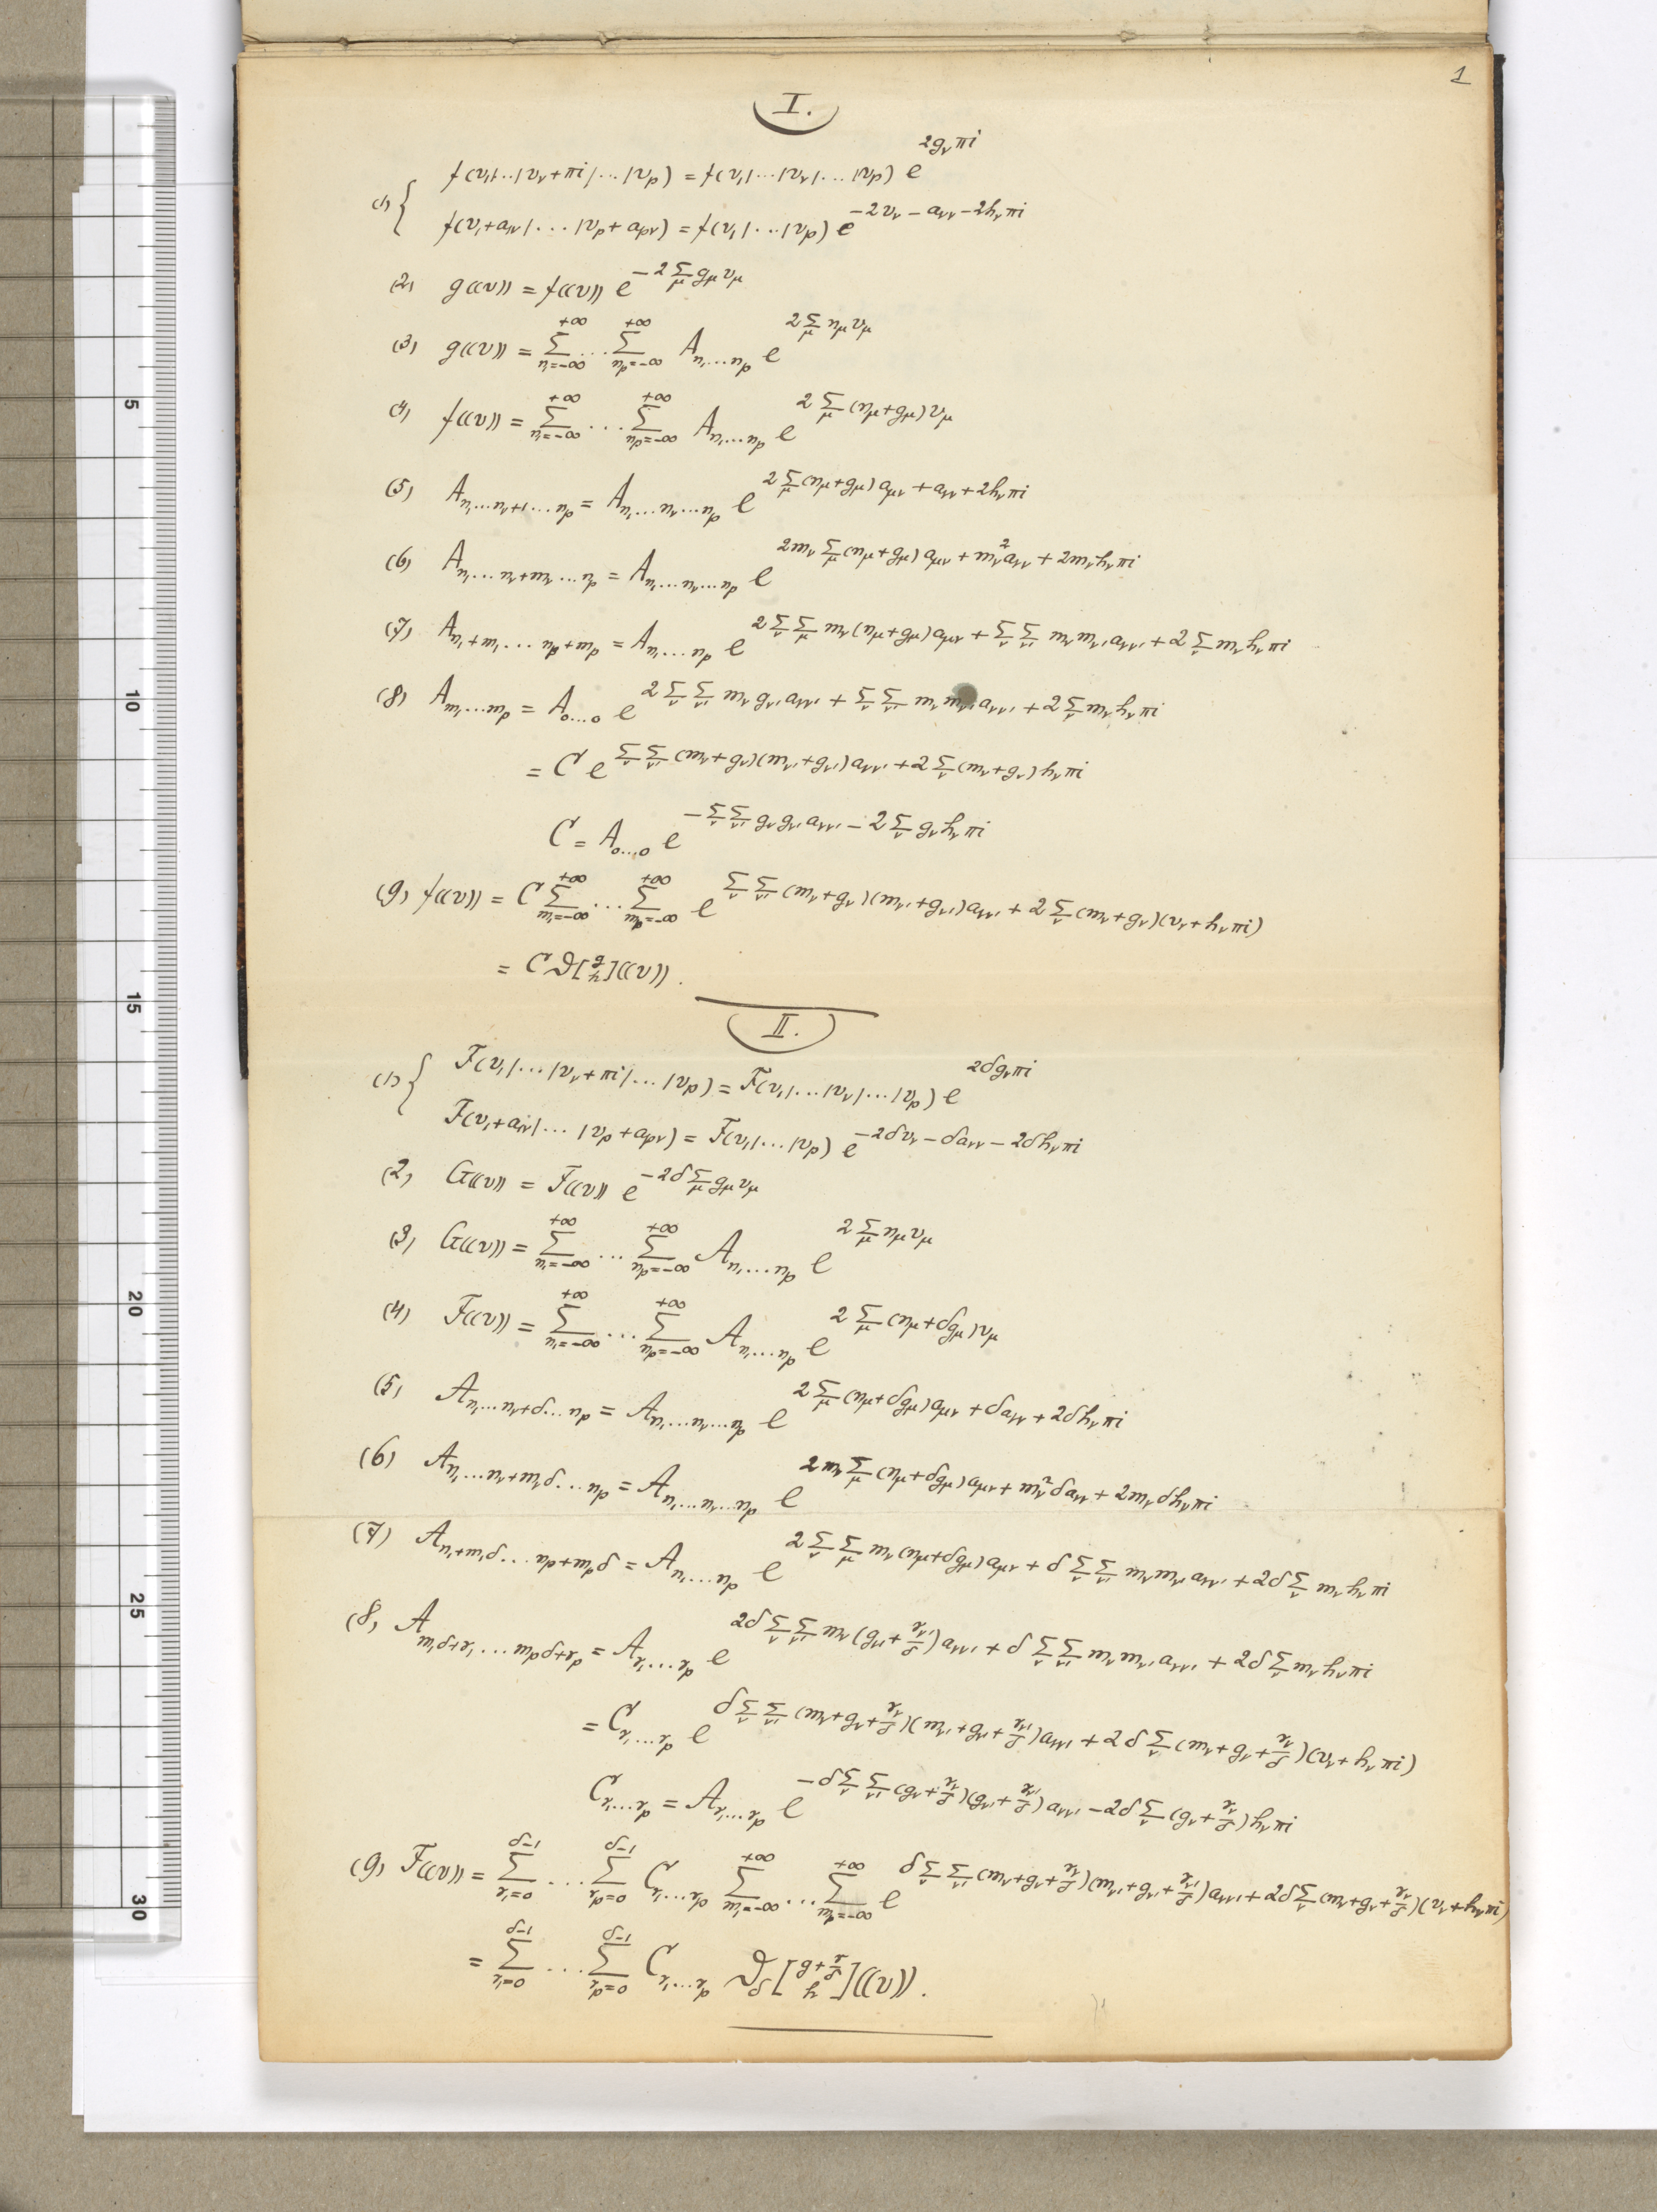 1
I.
(1) { f(v₁|...|v_ν+πi|...|v_p) = f(v₁|...|v_ν|...|v_p) e^{2g_νπi}
f(v₁+a_{1ν}|...|v_p+a_{pν}) = f(v₁|...|v_p) e^{-2v_ν - a_{νν} - 2h_νπi}
(2) g((v)) = f((v)) e^{-2 Σ_μ g_μ v_μ}
(3) g((v)) = Σ_{n₁=-∞}^{+∞} ... Σ_{n_p=-∞}^{+∞} A_{n₁...n_p} e^{2 Σ_μ n_μ v_μ}
(4) f((v)) = Σ_{n₁=-∞}^{+∞} ... Σ_{n_p=-∞}^{+∞} A_{n₁...n_p} e^{2 Σ_μ (n_μ+g_μ) v_μ}
(5) A_{n₁...n_ν+1...n_p} = A_{n₁...n_ν...n_p} e^{2 Σ_μ (n_μ+g_μ) a_{μν} + a_{νν} + 2h_νπi}
(6) A_{n₁...n_ν+m_ν...n_p} = A_{n₁...n_ν...n_p} e^{2m_ν Σ_μ (n_μ+g_μ) a_{μν} + m_ν² a_{νν} + 2m_ν h_νπi}
(7) A_{n₁+m₁...n_p+m_p} = A_{n₁...n_p} e^{2 Σ_ν Σ_μ m_ν (n_μ+g_μ) a_{μν} + Σ_ν Σ_ν' m_ν m_ν' a_{νν'} + 2 Σ_ν m_ν h_νπi}
(8) A_{m₁...m_p} = A_{0...0} e^{2 Σ_ν Σ_ν' m_ν g_ν' a_{νν'} + Σ_ν Σ_ν' m_ν m_ν' a_{νν'} + 2 Σ_ν m_ν h_νπi}
= C e^{Σ_ν Σ_ν' (m_ν+g_ν)(m_ν'+g_ν') a_{νν'} + 2 Σ_ν (m_ν+g_ν) h_νπi}
C = A_{0...0} e^{-Σ_ν Σ_ν' g_ν g_ν' a_{νν'} - 2 Σ_ν g_ν h_νπi}
(9) f((v)) = C Σ_{m₁=-∞}^{+∞} ... Σ_{m_p=-∞}^{+∞} e^{Σ_ν Σ_ν' (m_ν+g_ν)(m_ν'+g_ν') a_{νν'} + 2 Σ_ν (m_ν+g_ν)(v_ν+h_νπi)}
= C ϑ[g h]((v)).
II.
(1) { F(v₁|...|v_ν+πi|...|v_p) = F(v₁|...|v_ν|...|v_p) e^{2δg_νπi}
F(v₁+a_{1ν}|...|v_p+a_{pν}) = F(v₁|...|v_p) e^{-2δv_ν - δa_{νν} - 2δh_νπi}
(2) G((v)) = F((v)) e^{-2δ Σ_μ g_μ v_μ}
(3) G((v)) = Σ_{n₁=-∞}^{+∞} ... Σ_{n_p=-∞}^{+∞} A_{n₁...n_p} e^{2 Σ_μ n_μ v_μ}
(4) F((v)) = Σ_{n₁=-∞}^{+∞} ... Σ_{n_p=-∞}^{+∞} A_{n₁...n_p} e^{2 Σ_μ (n_μ+δg_μ) v_μ}
(5) A_{n₁...n_ν+δ...n_p} = A_{n₁...n_ν...n_p} e^{2 Σ_μ (n_μ+δg_μ) a_{μν} + δa_{νν} + 2δh_νπi}
(6) A_{n₁...n_ν+m_νδ...n_p} = A_{n₁...n_ν...n_p} e^{2m_ν Σ_μ (n_μ+δg_μ) a_{μν} + m_ν² δa_{νν} + 2m_ν δh_νπi}
(7) A_{n₁+m₁δ...n_p+m_pδ} = A_{n₁...n_p} e^{2 Σ_ν Σ_μ m_ν (n_μ+δg_μ) a_{μν} + δ Σ_ν Σ_ν' m_ν m_ν' a_{νν'} + 2δ Σ_ν m_ν h_νπi}
(8) A_{m₁δ+r₁...m_pδ+r_p} = A_{r₁...r_p} e^{2δ Σ_ν Σ_ν' m_ν (g_ν'+r_ν'/δ) a_{νν'} + δ Σ_ν Σ_ν' m_ν m_ν' a_{νν'} + 2δ Σ_ν m_ν h_νπi}
= C_{r₁...r_p} e^{δ Σ_ν Σ_ν' (m_ν+g_ν+r_ν/δ)(m_ν'+g_ν'+r_ν'/δ) a_{νν'} + 2δ Σ_ν (m_ν+g_ν+r_ν/δ)(v_ν+h_νπi)}
C_{r₁...r_p} = A_{r₁...r_p} e^{-δ Σ_ν Σ_ν' (g_ν+r_ν/δ)(g_ν'+r_ν'/δ) a_{νν'} - 2δ Σ_ν (g_ν+r_ν/δ) h_νπi}
(9) F((v)) = Σ_{r₁=0}^{δ-1} ... Σ_{r_p=0}^{δ-1} C_{r₁...r_p} Σ_{m₁=-∞}^{+∞} ... Σ_{m_p=-∞}^{+∞} e^{δ Σ_ν Σ_ν' (m_ν+g_ν+r_ν/δ)(m_ν'+g_ν'+r_ν'/δ) a_{νν'} + 2δ Σ_ν (m_ν+g_ν+r_ν/δ)(v_ν+h_νπi)}
= Σ_{r₁=0}^{δ-1} ... Σ_{r_p=0}^{δ-1} C_{r₁...r_p} ϑ_δ[g+r/δ h]((v)).
5
10
15
20
25
30